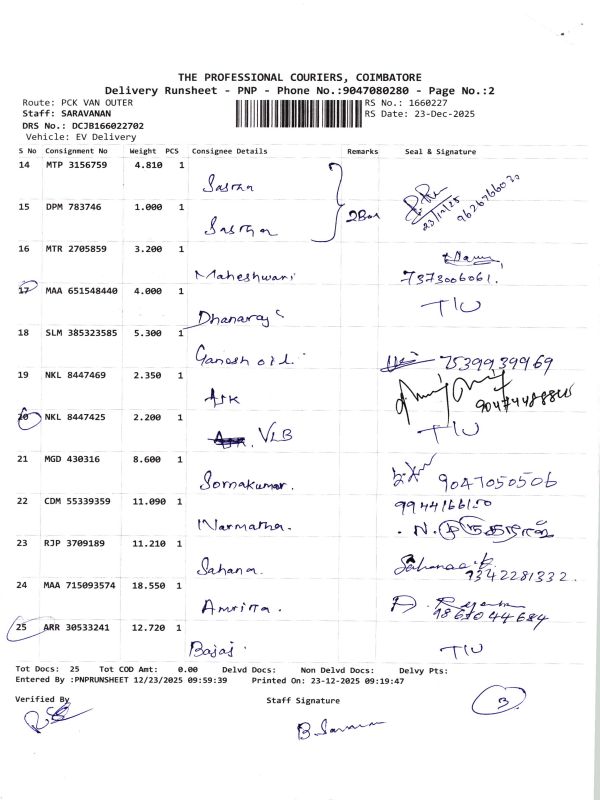 THE PROFESSIONAL COURIERS, COIMBATORE
Delivery Runsheet - PNP - Phone No.:9047080280 - Page No.:2
Route: PCK VAN OUTER RS No.: 1660227
Staff: SARAVANAN RS Date: 23-Dec-2025
DRS No.: DCJB166022702
Vehicle: EV Delivery
S No Consignment No Weight PCS Consignee Details Remarks Seal & Signature
14 MTP 3156759 4.810 1
Sastha
23/12/25
15 DPM 783746 1.000 1
Sastha 2Box
16 MTR 2705859 3.200 1
Maheshwari 7373006061.
17 MAA 651548440 4.000 1
Dhanaraj T/U
18 SLM 385323585 5.300 1
Ganesh oil. 7539939969
19 NKL 8447469 2.350 1
Ask
20 NKL 8447425 2.200 1
VLB T/U
21 MGD 430316 8.600 1
Sornakumar. 9047050506
22 CDM 55339359 11.090 1
Narmatha.
23 RJP 3709189 11.210 1
Sahana. 9342281332.
24 MAA 715093574 18.550 1
Amrita.
25 ARR 30533241 12.720 1
Bajaj T/U
Tot Docs: 25 Tot COD Amt: 0.00 Delvd Docs: Non Delvd Docs: Delvy Pts:
Entered By :PNPRUNSHEET 12/23/2025 09:59:39 Printed On: 23-12-2025 09:19:47
Verified By Staff Signature
3